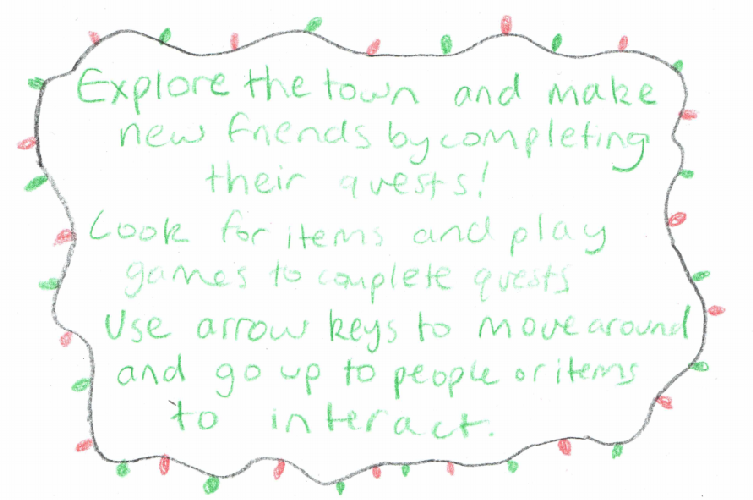 Explore the town and make
new friends by completing
their quests!
Look for items and play
games to complete quests
Use arrow keys to move around
and go up to people or items
to interact.